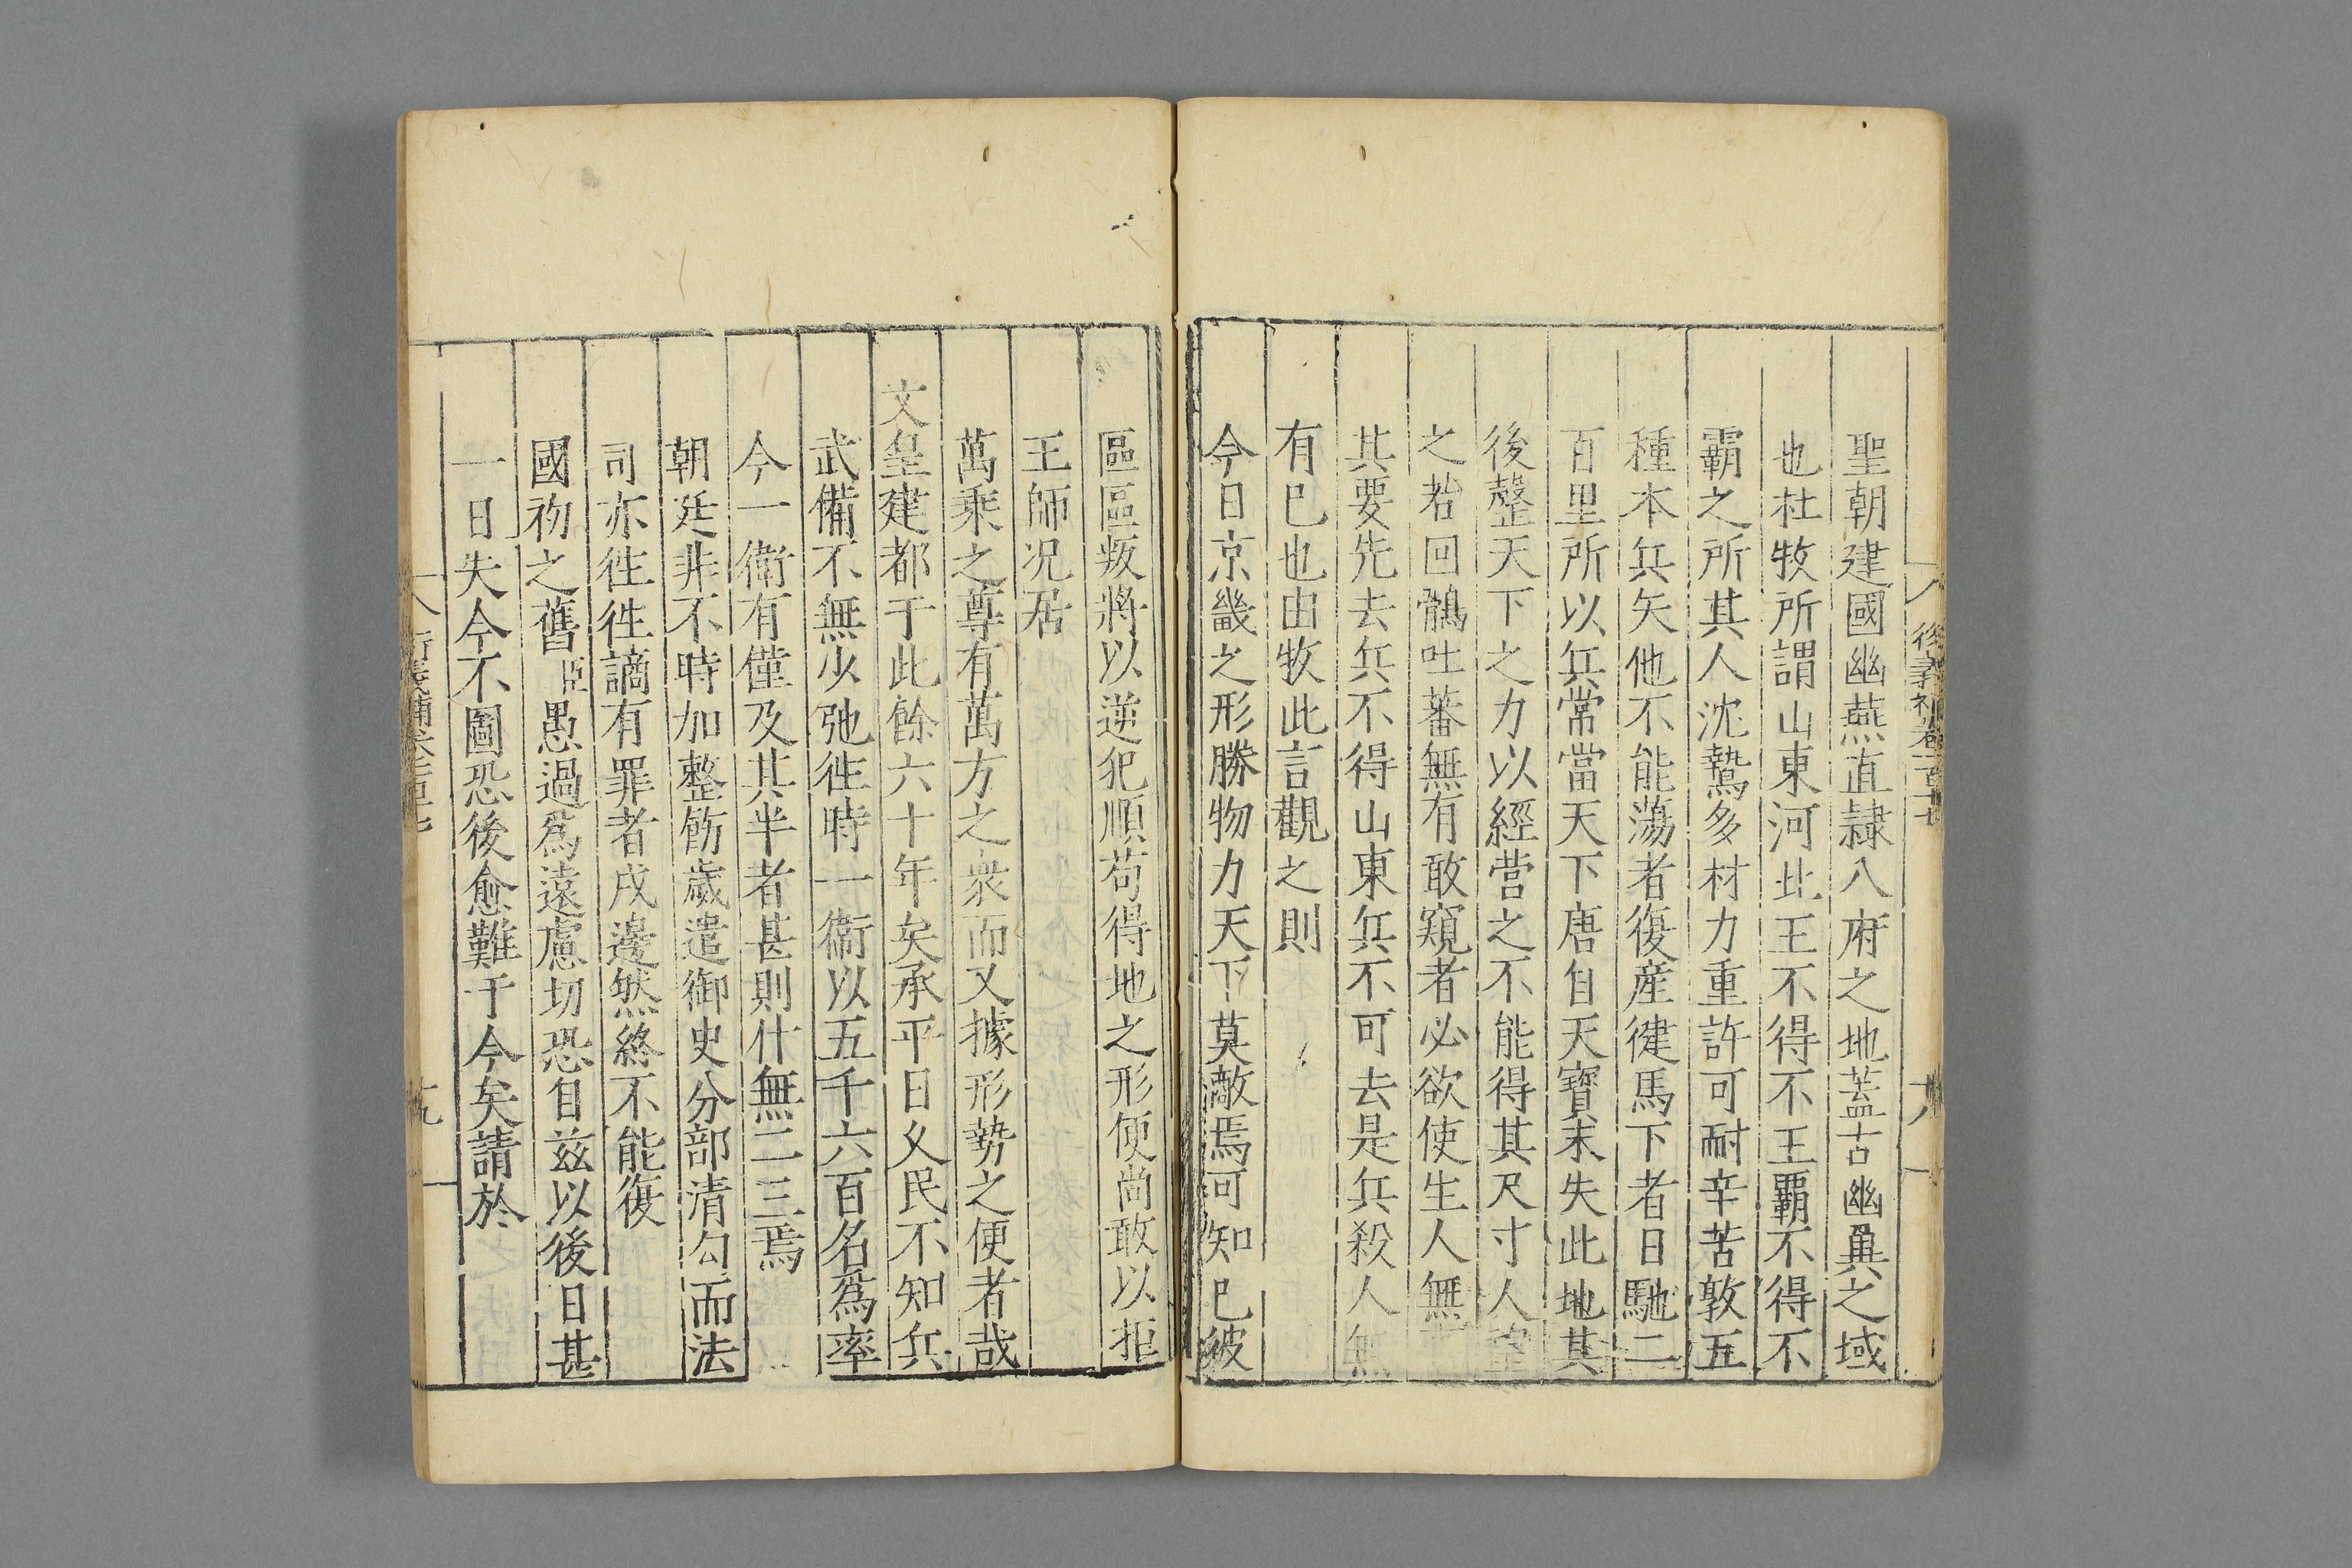 聖朝建國幽燕直隸八府之地蓋古幽冀之域
也杜牧所謂山東河北王不得不王霸不得不
霸之所其人沈鷙多材力重許可耐辛苦敦五
種本兵矢他不能蕩者復産健馬下者日馳二
百里所以兵常當天下唐自天寶末失此地其
後罄天下之力以經營之不能得其尺寸人望
之若回鶻吐蕃無有敢窺者必欲使生人無
其要先去兵不得山東兵不可去是兵殺人無
有已也由牧此言觀之則
今日京畿之形勝物力天下莫敵焉可知已彼
區區叛將以逆犯順苟得地之形便尚敢以拒
王師况居
萬乘之尊有萬方之衆而又據形勢之便者哉
文皇建都于此餘六十年矣承平日久民不知兵
武備不無少弛徃時一衛以五千六百名爲率
今一衛有僅及其半者甚則什無二三焉
朝廷非不時加整飭歲遣御史分部清勾而法
司亦徃徃謫有罪者戍邊然終不能復
國初之舊臣愚過爲遠慮切恐自兹以後日甚
一日失今不圖恐後愈難于今矣請於